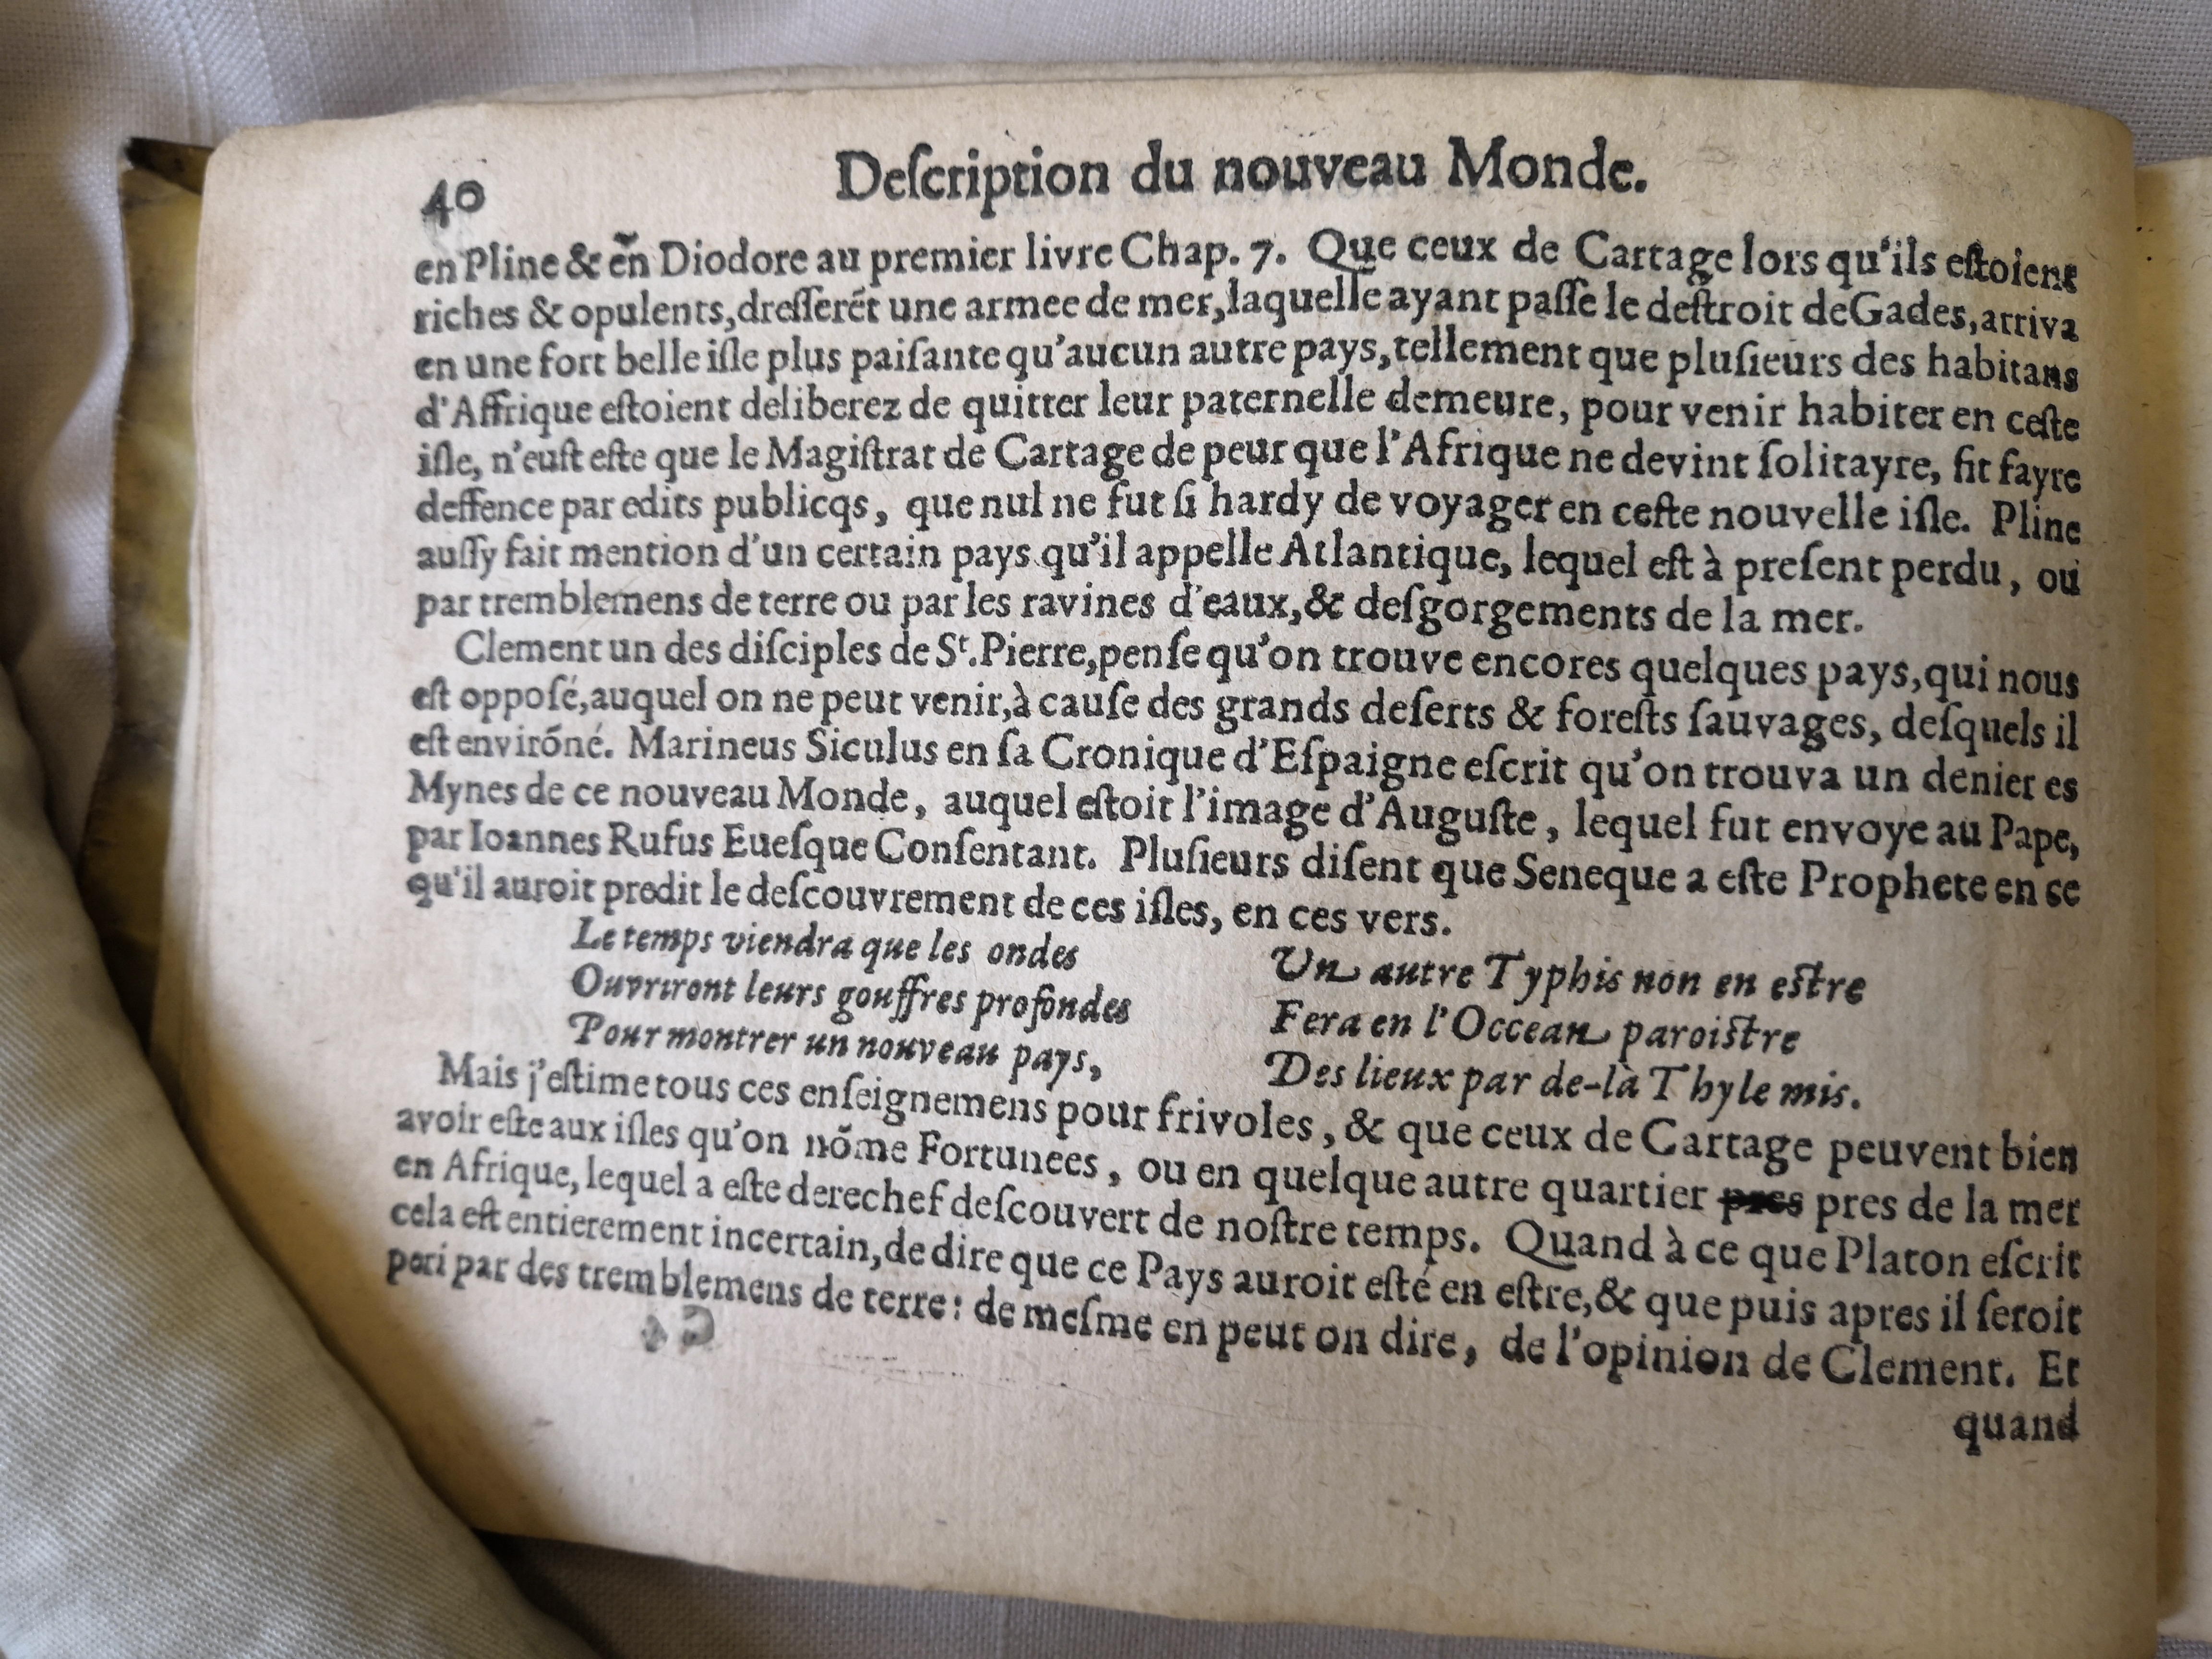 40
Deſcription du nouveau Monde.
en Pline & en Diodore au premier livre Chap. 7. Que ceux de Cartage lors qu'ils eſtoient
riches & opulents, dreſſerẽt une armee de mer, laquelle ayant paſſe le deſtroit de Gades, arriva
en une fort belle iſle plus paiſante qu'aucun autre pays, tellement que pluſieurs des habitans
d'Affrique eſtoient deliberez de quitter leur paternelle demeure, pour venir habiter en ceſte
iſle, n'euſt eſte que le Magiſtrat de Cartage de peur que l'Afrique ne devint ſolitayre, fit fayre
deffence par edits publicqs, que nul ne fut ſi hardy de voyager en ceſte nouvelle iſle. Pline
auſſy fait mention d'un certain pays qu'il appelle Atlantique, lequel eſt à preſent perdu, ou
par tremblemens de terre ou par les ravines d'eaux, & deſgorgements de la mer.
Clement un des diſciples de St. Pierre, penſe qu'on trouve encores quelques pays, qui nous
eſt oppoſé, auquel on ne peut venir, à cauſe des grands deſerts & foreſts ſauvages, deſquels il
eſt envirõné. Marineus Siculus en ſa Cronique d'Eſpaigne eſcrit qu'on trouva un denier es
Mynes de ce nouveau Monde, auquel eſtoit l'image d'Auguſte, lequel fut envoye au Pape,
par Ioannes Rufus Eueſque Conſentant. Pluſieurs diſent que Seneque a eſte Prophete en ce
qu'il auroit predit le deſcouvrement de ces iſles, en ces vers.
Le temps viendra que les ondes
Ouvriront leurs gouffres profondes
Pour montrer un nouveau pays,
Un autre Typhis non en eſtre
Fera en l'Occean paroiſtre
Des lieux par de-là Thyle mis.
Mais j'eſtime tous ces enſeignemens pour frivoles, & que ceux de Cartage peuvent bien
avoir eſte aux iſles qu'on nõme Fortunees, ou en quelque autre quartier pres pres de la mer
en Afrique, lequel a eſte derechef deſcouvert de noſtre temps. Quand à ce que Platon eſcrit
cela eſt entierement incertain, de dire que ce Pays auroit eſté en eſtre, & que puis apres il ſeroit
peri par des tremblemens de terre: de meſme en peut on dire, de l'opinion de Clement. Et
quand